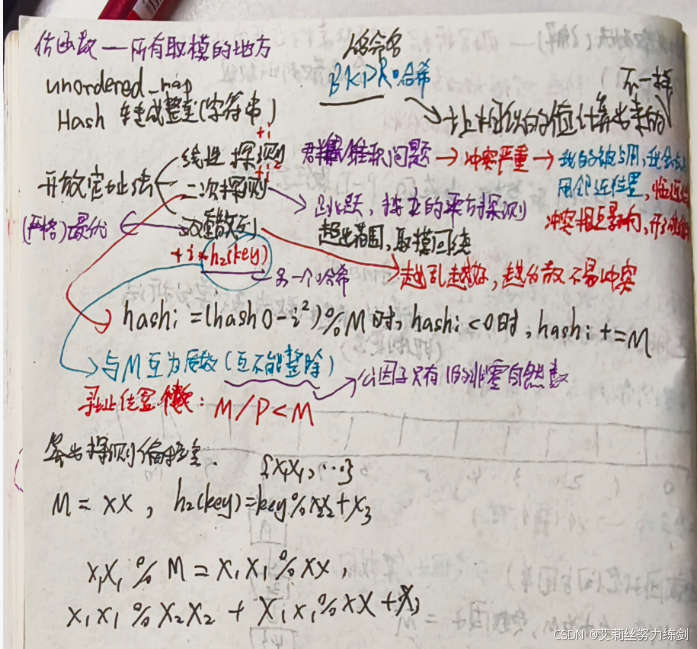 仿函数——所有取模的地方
以命名
BKDR哈希
不一样
unordered_map
Hash 转成整型(字符串)
让相似的值计算出来的
开放定址法
线性探测 +i
群集/堆积问题 → 冲突严重 →
二次探测 +i²
跳跃,按i的平方探测
用邻近位置,
(严格)最优
双重散列
超出范围,取模回绕
冲突相互影响,
+i*h₂(key)
另一个哈希
越乱越好,越分散不易冲突
hashi=(hash0-i²)%M时,hashi<0时,hashi+=M
与M互为质数(互不能整除)
公因子只有1的非零自然数
寻址位置 : M/P<M
算出探测偏移量.
{x₁x₁,...}
M=XX, h₂(key)=key%xx₂+x₃
x₁x₁%M=x₁x₁%xx,
x₁x₁%x₂x₂+x₁x₁%xx+x₃
CSDN @艾莉丝努力练剑